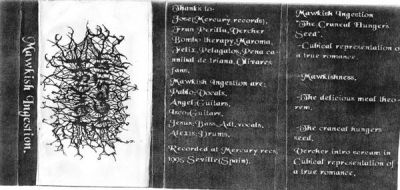 Mawkish Ingestion.
Thanks to:
Jose(Mercury records),
Fran Perilla, Vercher
Bombo therapy, Maroma,
Felix, Pelagatos, Pena ca-
nnibal de triana, Olivares
fans,
Mawkish Ingestion are:
Pablo: Vocals,
Angel: Guitars,
Isco: Guitars,
Jesus: Bass Adt, vocals,
Alexis: Drums,
Recorded at Mercury recs,
1995 Seville(Spain),
Mawkish Ingestion
"The Craneal Hungers
Seed",
-Cubical representation of
a true romance,
-Mawkishness,
-The delicious meal theo-
rem,
-The craneal hungers
seed,
Vercher intro scream in
Cubical representation of
a true romance,